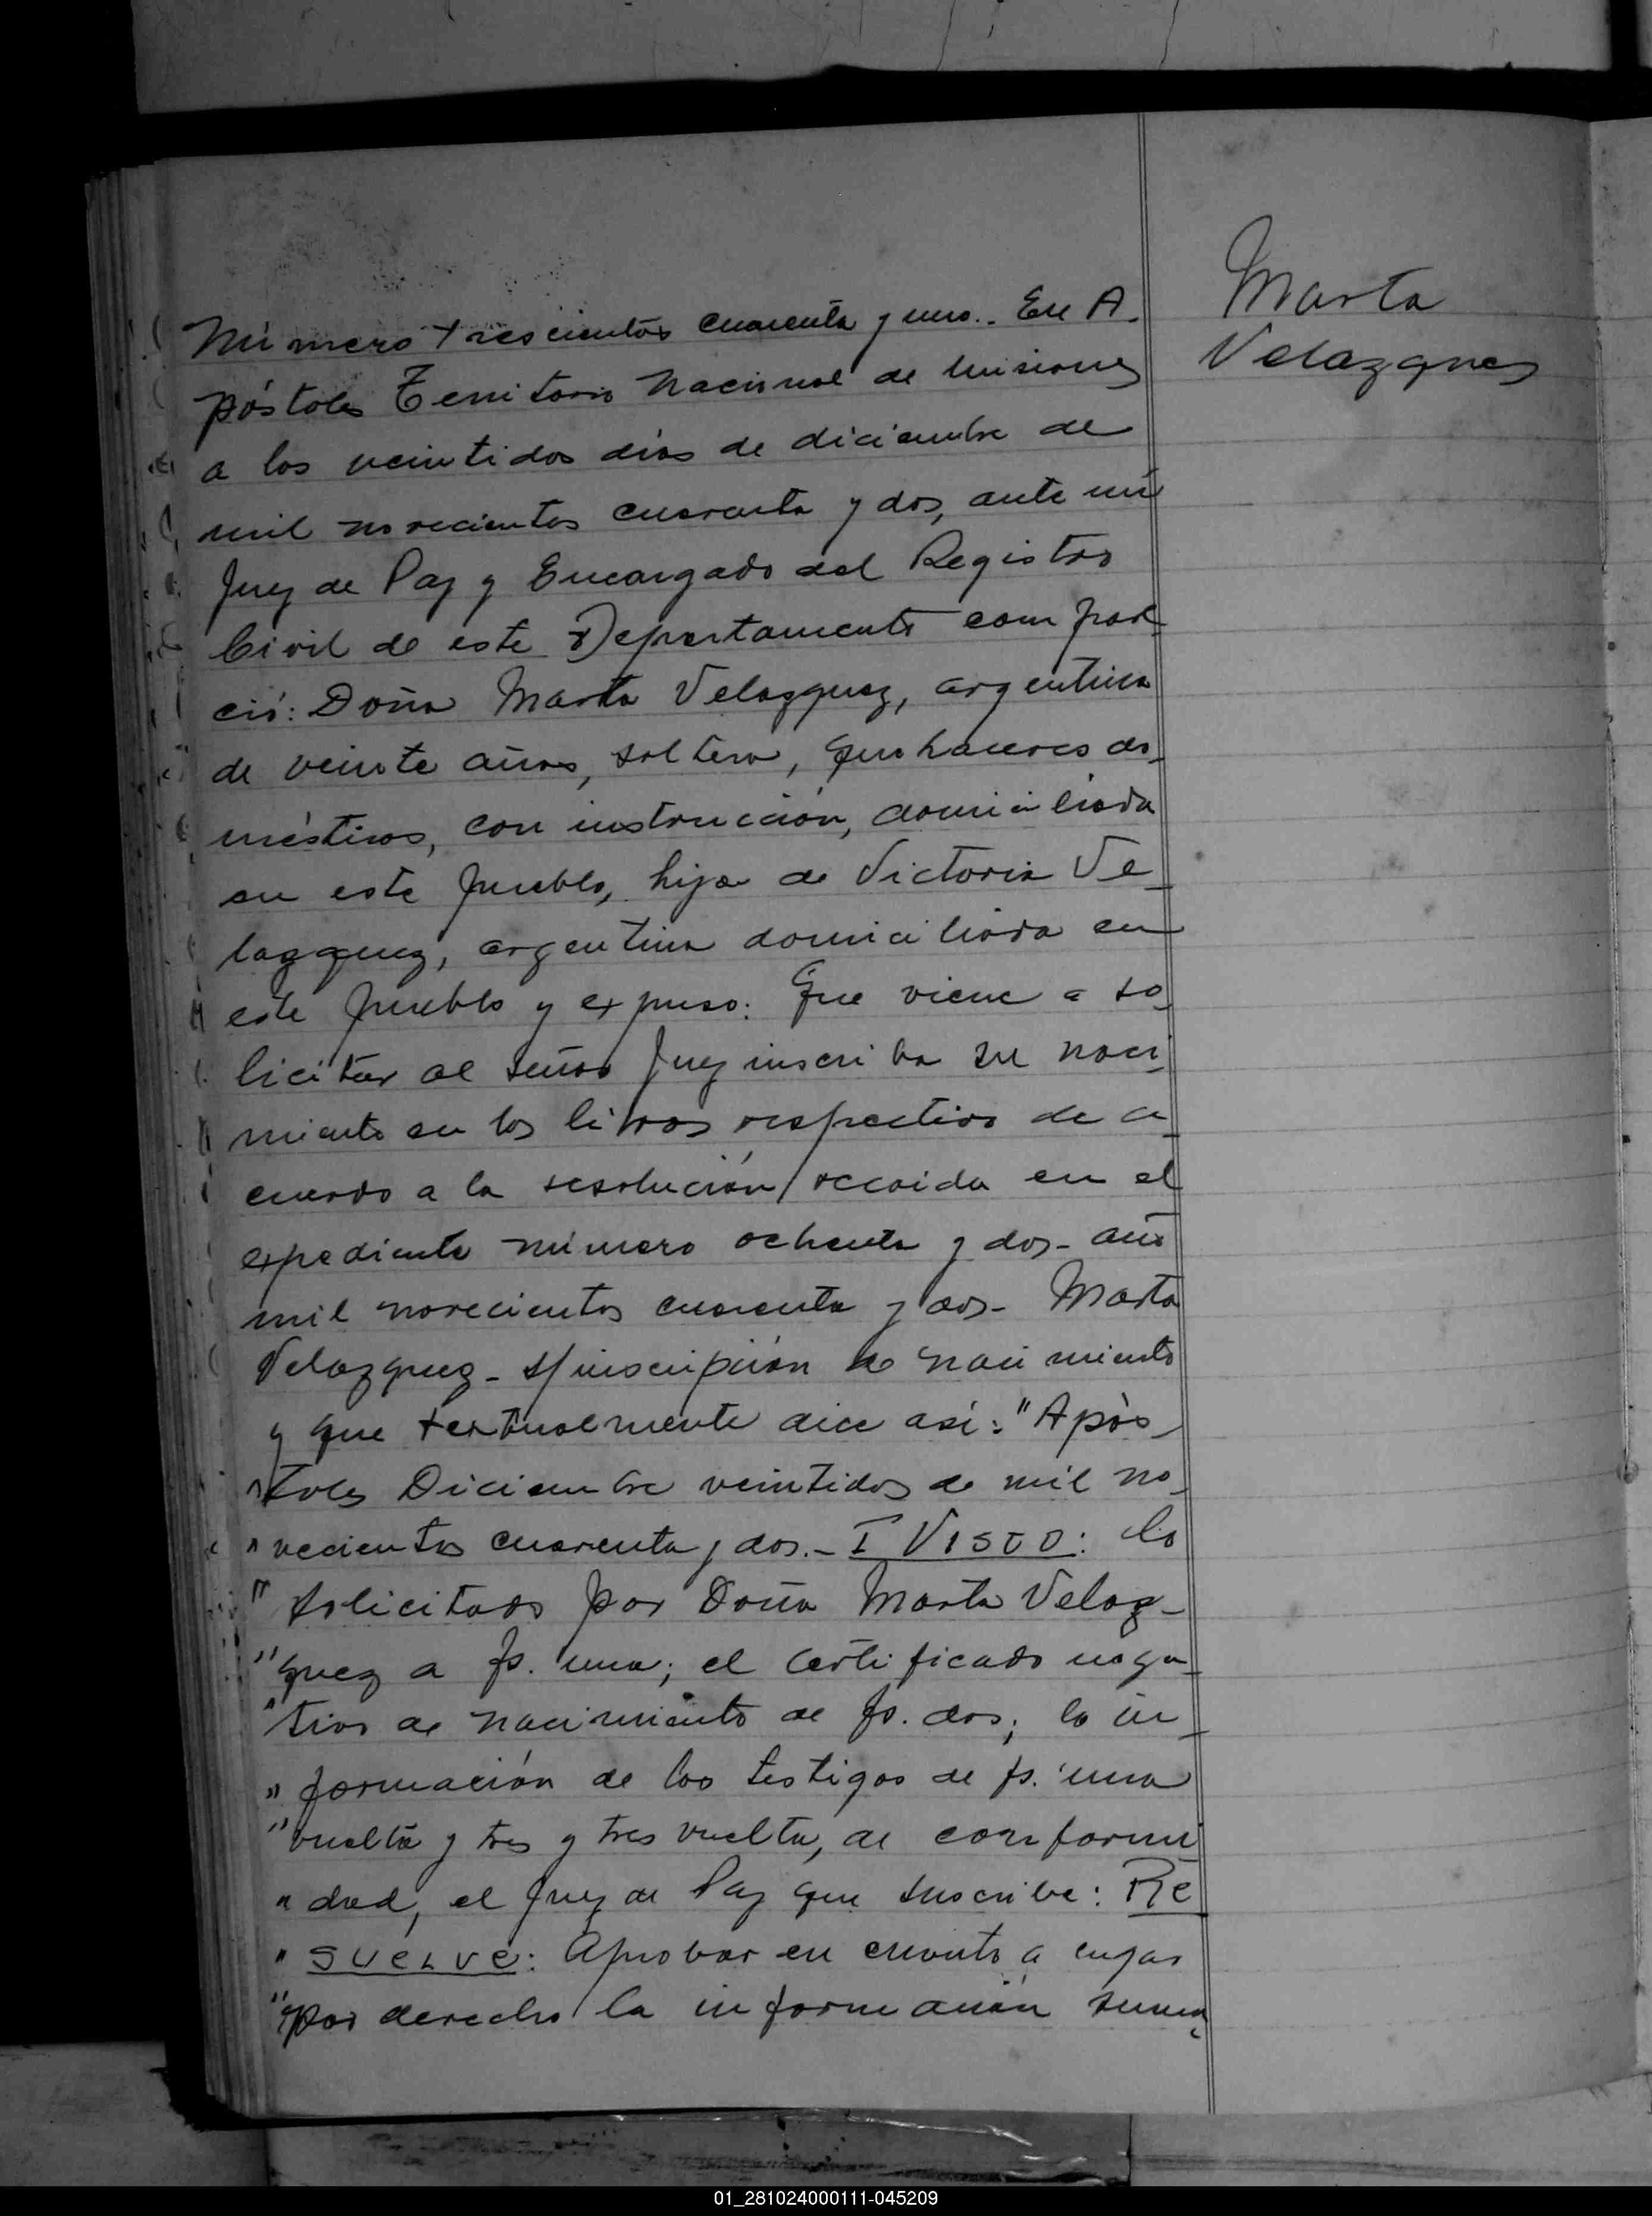 Número trescientos cuarenta y uno.- En A-
póstoles Territorio Nacional de Misiones
a los veintidos dias de diciembre de
mil novecientos cuarenta y dos, ante mi
Juez de Paz y Encargado del Registro
Civil de este Departamento compare
ció: Doña Marta Velazquez, argentina
de veinte años, soltera, quehaceres do-
mésticos, con instrucción, domiciliada
en este pueblo, hija de Victoria Ve-
lazquez, argentina domiciliada en
este pueblo y expuso: Que viene a so-
licitar al señor Juez inscriba su naci-
miento en los libros respectivos de a-
cuerdo a la resolución recaida en el
expediente número ochenta y dos- año
mil novecientos cuarenta y dos- Marta
Velazquez- s/inscripción de nacimiento
y que textualmente dice así: "Após-
"toles Diciembre veintidos de mil no-
" vecientos cuarenta y dos.- Y VISTO: lo
" solicitado por Doña Marta Velaz-
"quez a fs. una; el certificado nega-
"tivo de nacimiento de fs. dos; la in-
" formación de los testigos de fs. una
"vuelta y tres y tres vuelta, de conformi
" dad, el Juez de Paz que suscribe: RE
" SUELVE: Aprobar en cuanto a lugar
"por derecho la información suma-
Marta
Velazquez
01_281024000111-045209